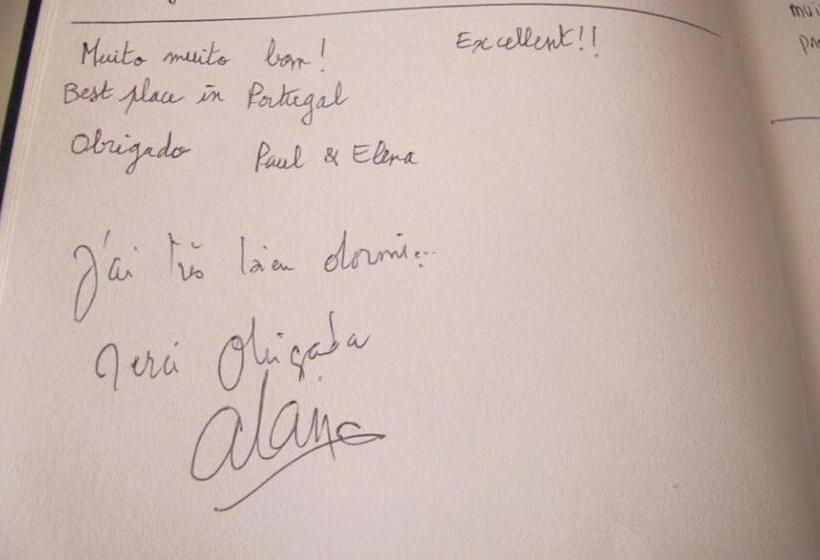 Muito muito bom! Excellent!!
Best place in Portugal
Obrigado Paul & Elena
J'ai très bien dormi...
Merci Obrigada
Alain
mui